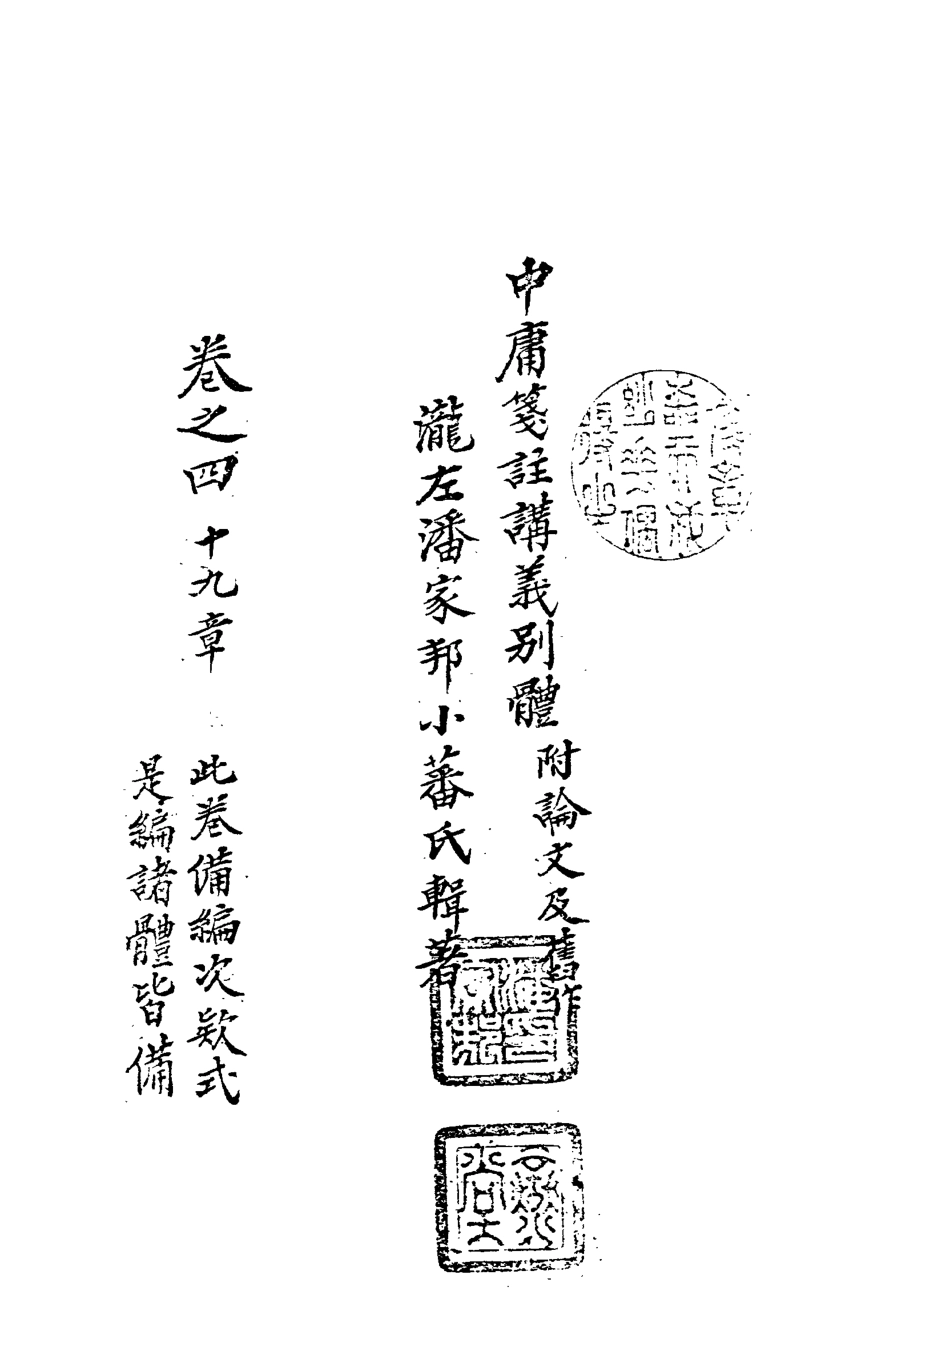 中庸箋註講義別體
附論文及舊作
瀧左潘家邦小蕃氏輯著
卷之四 十九章
此卷備編次欵式
是編諸體皆備